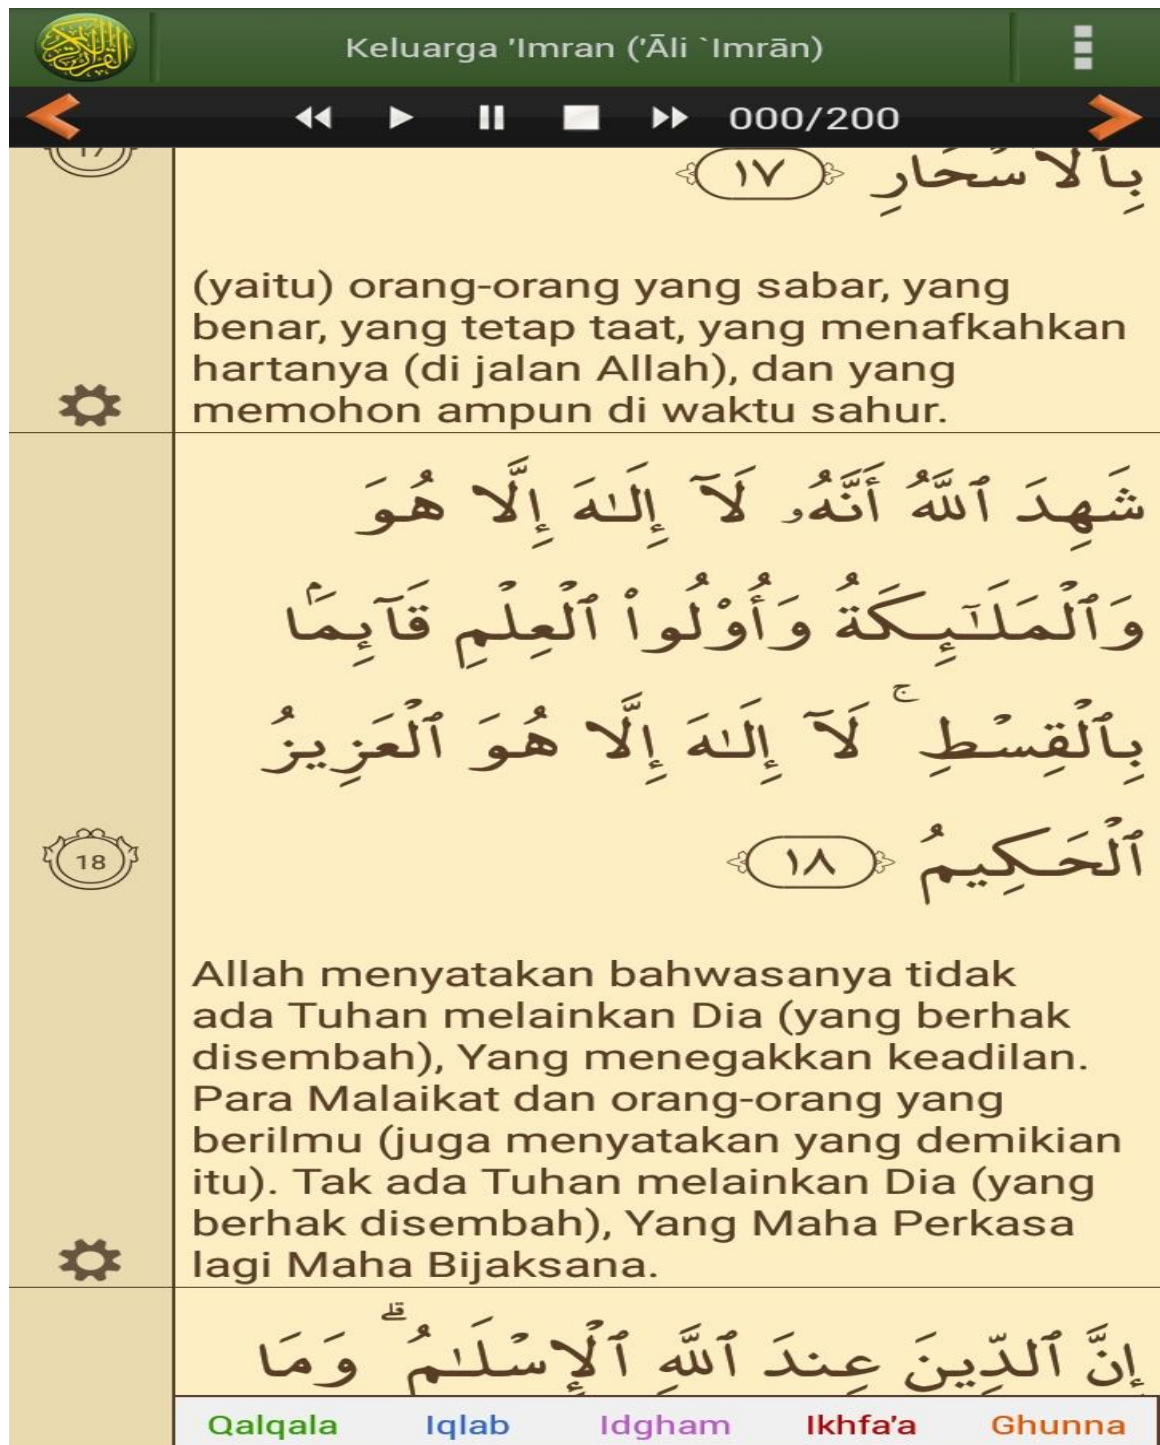 Keluarga 'Imran ('Āli `Imrān)
000/200
17
بِٱلْأَسْحَارِ ١٧
(yaitu) orang-orang yang sabar, yang
benar, yang tetap taat, yang menafkahkan
hartanya (di jalan Allah), dan yang
memohon ampun di waktu sahur.
شَهِدَ ٱللَّهُ أَنَّهُۥ لَآ إِلَـٰهَ إِلَّا هُوَ
وَٱلْمَلَـٰٓئِكَةُ وَأُو۟لُوا۟ ٱلْعِلْمِ قَآئِمًۢا
بِٱلْقِسْطِ ۚ لَآ إِلَـٰهَ إِلَّا هُوَ ٱلْعَزِيزُ
ٱلْحَكِيمُ ١٨
18
Allah menyatakan bahwasanya tidak
ada Tuhan melainkan Dia (yang berhak
disembah), Yang menegakkan keadilan.
Para Malaikat dan orang-orang yang
berilmu (juga menyatakan yang demikian
itu). Tak ada Tuhan melainkan Dia (yang
berhak disembah), Yang Maha Perkasa
lagi Maha Bijaksana.
إِنَّ ٱلدِّينَ عِندَ ٱللَّهِ ٱلْإِسْلَـٰمُ ۗ وَمَا
Qalqala Iqlab Idgham Ikhfa'a Ghunna